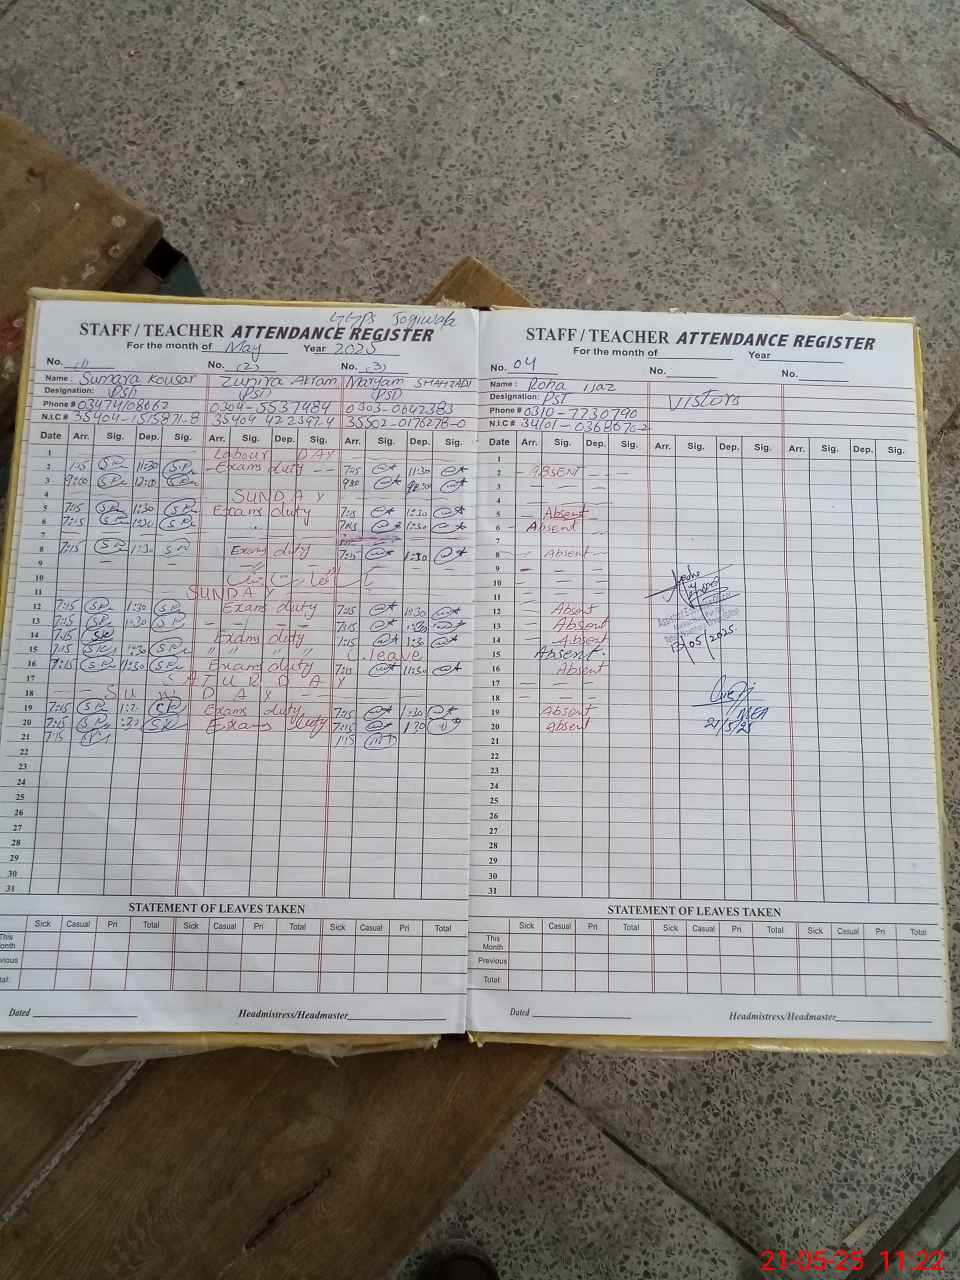 GGPS Jogiwala
STAFF / TEACHER ATTENDANCE REGISTER
For the month of May Year 2025
No. (1) No. (2) No. (3)
Name: Sumara Kousar Zunira Akram Maryam SHAHZADI
Designation: PST (PST) (PST)
Phone # 03474108662 0304-5537484 0303-0642383
N.I.C # 35404-1515871-8 35404 4223474 35502-0176278-0
Date Arr. Sig. Dep. Sig. Arr. Sig. Dep. Sig. Arr. Sig. Dep. Sig.
1 Labour DAY
2 7:15 SP 11:30 SP Exams duty 7:15 11:30
3 9:00 SP 12:00 SP
4 SUNDAY
5 7:15 SP 1:30 SP Exams duty 7:15 1:30
6 7:15 SP 1:30 SP 7:15 1:30
7
8 7:15 SP 1:30 SP Exams duty 7:15 1:30
9
10
11 SUNDAY
12 7:15 SP 1:30 SP Exam duty 7:15 1:30
13 7:15 SP 1:30 SP 7:15 1:30
14 7:15 SP Exams duty 7:15 1:30
15 7:15 SP 1:30 SP " " " " C. leave
16 7:15 SP 11:30 SP Exams duty 7:15 11:30
17 SATURDAY
18 SUNDAY
19 7:15 SP 1:30 SP Exams duty 7:15 1:30
20 7:15 SP SP Exams duty 7:15 1:30
21 7:15
22
23
24
25
26
27
28
29
30
31
STATEMENT OF LEAVES TAKEN
Sick Casual Pri Total Sick Casual Pri Total Sick Casual Pri Total
This Month
Dated Headmistress/Headmaster
STAFF / TEACHER ATTENDANCE REGISTER
For the month of Year
No. 04 No. No.
Name: Roha ijaz
Designation: PST Vistors
Phone # 0310-7730790
N.I.C #
Date Arr. Sig. Dep. Sig. Arr. Sig. Dep. Sig. Arr. Sig. Dep. Sig.
1
2 ABSENT
3
4
5 Absent
6 Absent
7
8 Absent
9
10
11
12 Absent
13 Absent
14 Absent
15 Absent.
16 Absent
17
18
19 Absent
20 Absent
21
22
23
24
25
26
27
28
29
30
31
13/05/2025.
21/5/25
STATEMENT OF LEAVES TAKEN
Sick Casual Pri Total Sick Casual Pri Total Sick Casual Pri Total
This Month
Previous
Total:
Dated Headmistress/Headmaster
21-05-25 11:22